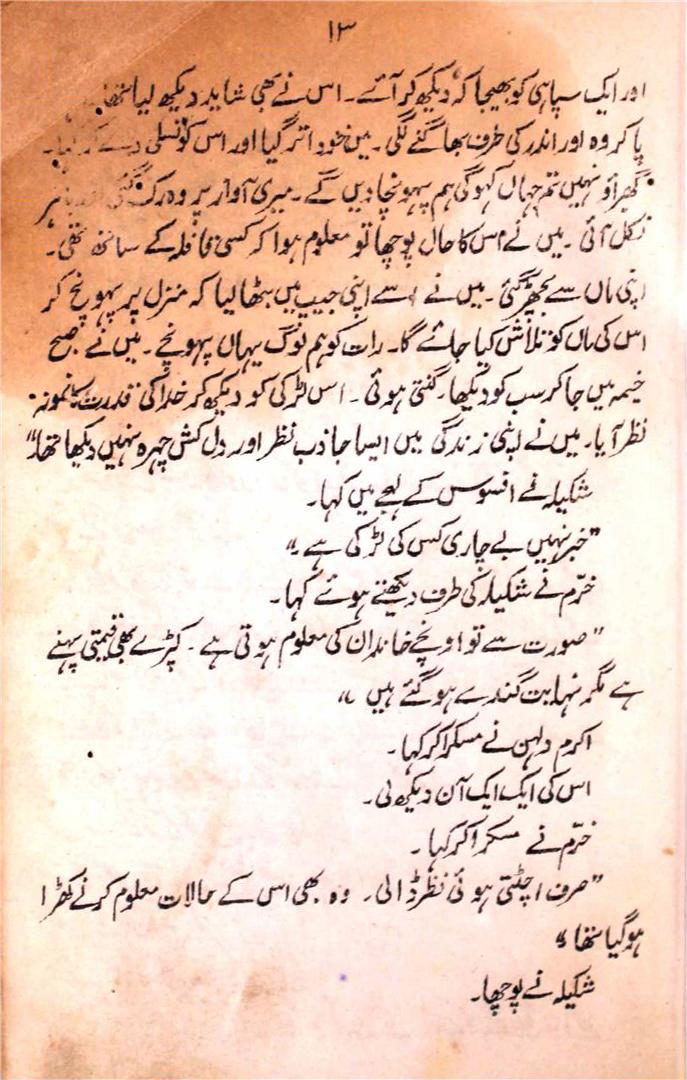 ۱۳
اور ایک سپاہی کو بھیجا کہ دیکھ کر آئے۔ اس نے بھی شاید دیکھ لیا تھا
پاکر وہ اور اندر کی طرف بھاگنے لگی۔ میں خود اتر گیا اور اس کو تسلی دے کر کہا۔
گھبراؤ نہیں تم جہاں کہو گی ہم پہونچا دیں گے۔ میری آواز پر وہ رک گئی اور باہر
نکل آئی۔ میں نے اس کا حال پوچھا تو معلوم ہوا کہ کسی قافلہ کے ساتھ تھی۔
اپنی ماں سے بچھڑ گئی۔ میں نے اسے اپنی جیپ میں بٹھا لیا کہ منزل پر پہونچ کر
اس کی ماں کو تلاش کیا جائے گا۔ رات کو ہم لوگ یہاں پہونچے۔ میں نے صبح
خیمہ میں جا کر سب کو دیکھا۔ گنتی ہوئی۔ اس لڑکی کو دیکھ کر خدا کی قدرت کا نمونہ
نظر آیا۔ میں نے اپنی زندگی میں ایسا جاذب نظر اور دل کش چہرہ نہیں دیکھا تھا۔"
شکیلہ نے افسوس کے لہجے میں کہا۔
"خبر نہیں بے چاری کس کی لڑکی ہے۔"
خرّم نے شکیلہ کی طرف دیکھتے ہوئے کہا۔
"صورت سے تو اونچے خاندان کی معلوم ہوتی ہے۔ کپڑے بھی قیمتی پہنے
ہے مگر نہایت گندے ہو گئے ہیں۔"
اکرم دلہن نے مسکرا کر کہا۔
اس کی ایک ایک آن دیکھ لی۔
خرّم نے مسکرا کر کہا۔
"صرف اچٹتی ہوئی نظر ڈالی۔ وہ بھی اس کے حالات معلوم کرنے کھڑا
ہو گیا تھا۔"
شکیلہ نے پوچھا۔